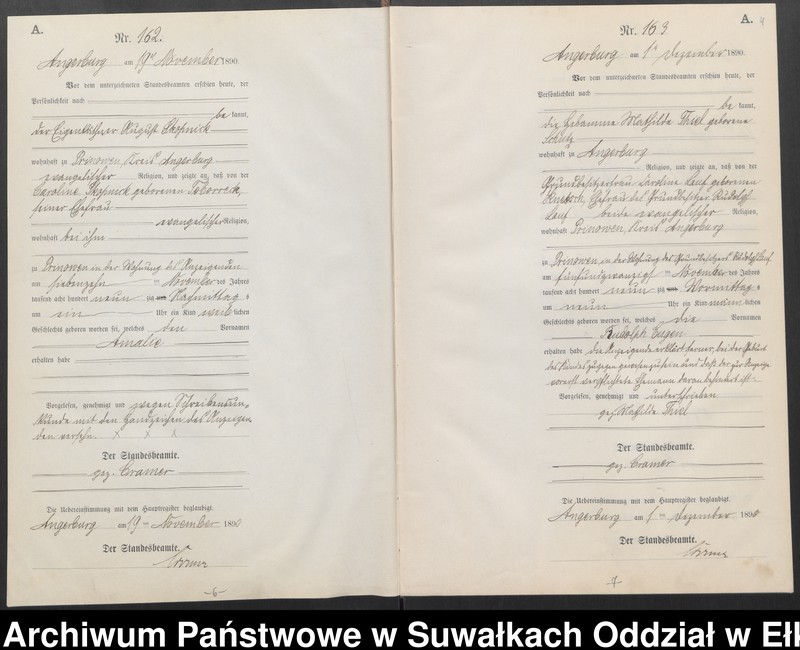 A.
Nr. 162.
Angerburg am 19ten November 1890.
Vor dem unterzeichneten Standesbeamten erschien heute, der
Persönlichkeit nach
be kannt,
der Eigenkäthner August Skopnick
wohnhaft zu Prinowen, Kreis Angerburg
evangelischer Religion, und zeigte an, daß von der
Caroline Skopnick geborenen
seiner Ehefrau
evangelischer Religion,
wohnhaft bei ihm
zu Prinowen in der Wohnung des Anzeigenden
am siebenzehn ten November des Jahres
tausend acht hundert neunzig Nachmittag s
um ein Uhr ein Kind weib lichen
Geschlechts geboren worden sei, welches den Vornamen
Amalie
erhalten habe
Vorgelesen, genehmigt und wegen Schreibensun-
kunde mit dem Handzeichen des Anzeigen
den versehn. X X X
Der Standesbeamte.
gez. Cramer
Die Uebereinstimmung mit dem Hauptregister beglaubigt.
Angerburg am 19 ten November 1890
Der Standesbeamte.
-6-
A. 4
Nr. 163
Angerburg am 1ten Dezember 1890.
Vor dem unterzeichneten Standesbeamten erschien heute, der
Persönlichkeit nach
be kannt,
die Hebamme Mathilde Thiel geborene
Schütz
wohnhaft zu Angerburg
Religion, und zeigte an, daß von der
Grundbesitzerfrau Caroline Kauf geborenen
Ehefrau des Grundbesitzer Rudolf
Kauf beide evangelischer Religion,
wohnhaft Prinowen, Kreis Angerburg
zu Prinowen in der Wohnung des Grundbesitzers Rudolf Kauf
am fünfundzwanzigst ten November des Jahres
tausend acht hundert neunzig Vormittag s
um neun Uhr ein Kind männ lichen
Geschlechts geboren worden sei, welches die Vornamen
Rudolph Eugen
erhalten habe die Anzeigende erklärt ferner, bei der Geburt
des Kindes zugegen gewesen zu sein und daß der zur Anzeige
verpflichtete Ehemann daran behindert ist.
Vorgelesen, genehmigt und unterschrieben
gez. Mathilde Thiel
Der Standesbeamte.
gez. Cramer
Die Uebereinstimmung mit dem Hauptregister beglaubigt.
Angerburg am 1 ten Dezember 1890
Der Standesbeamte.
-7-
Archiwum Państwowe w Suwałkach Oddział w Ełk